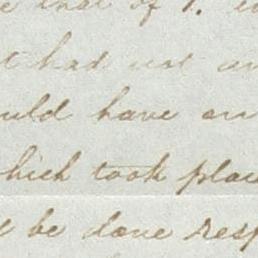 that of
had not
uld have an
which took plac
be done resp